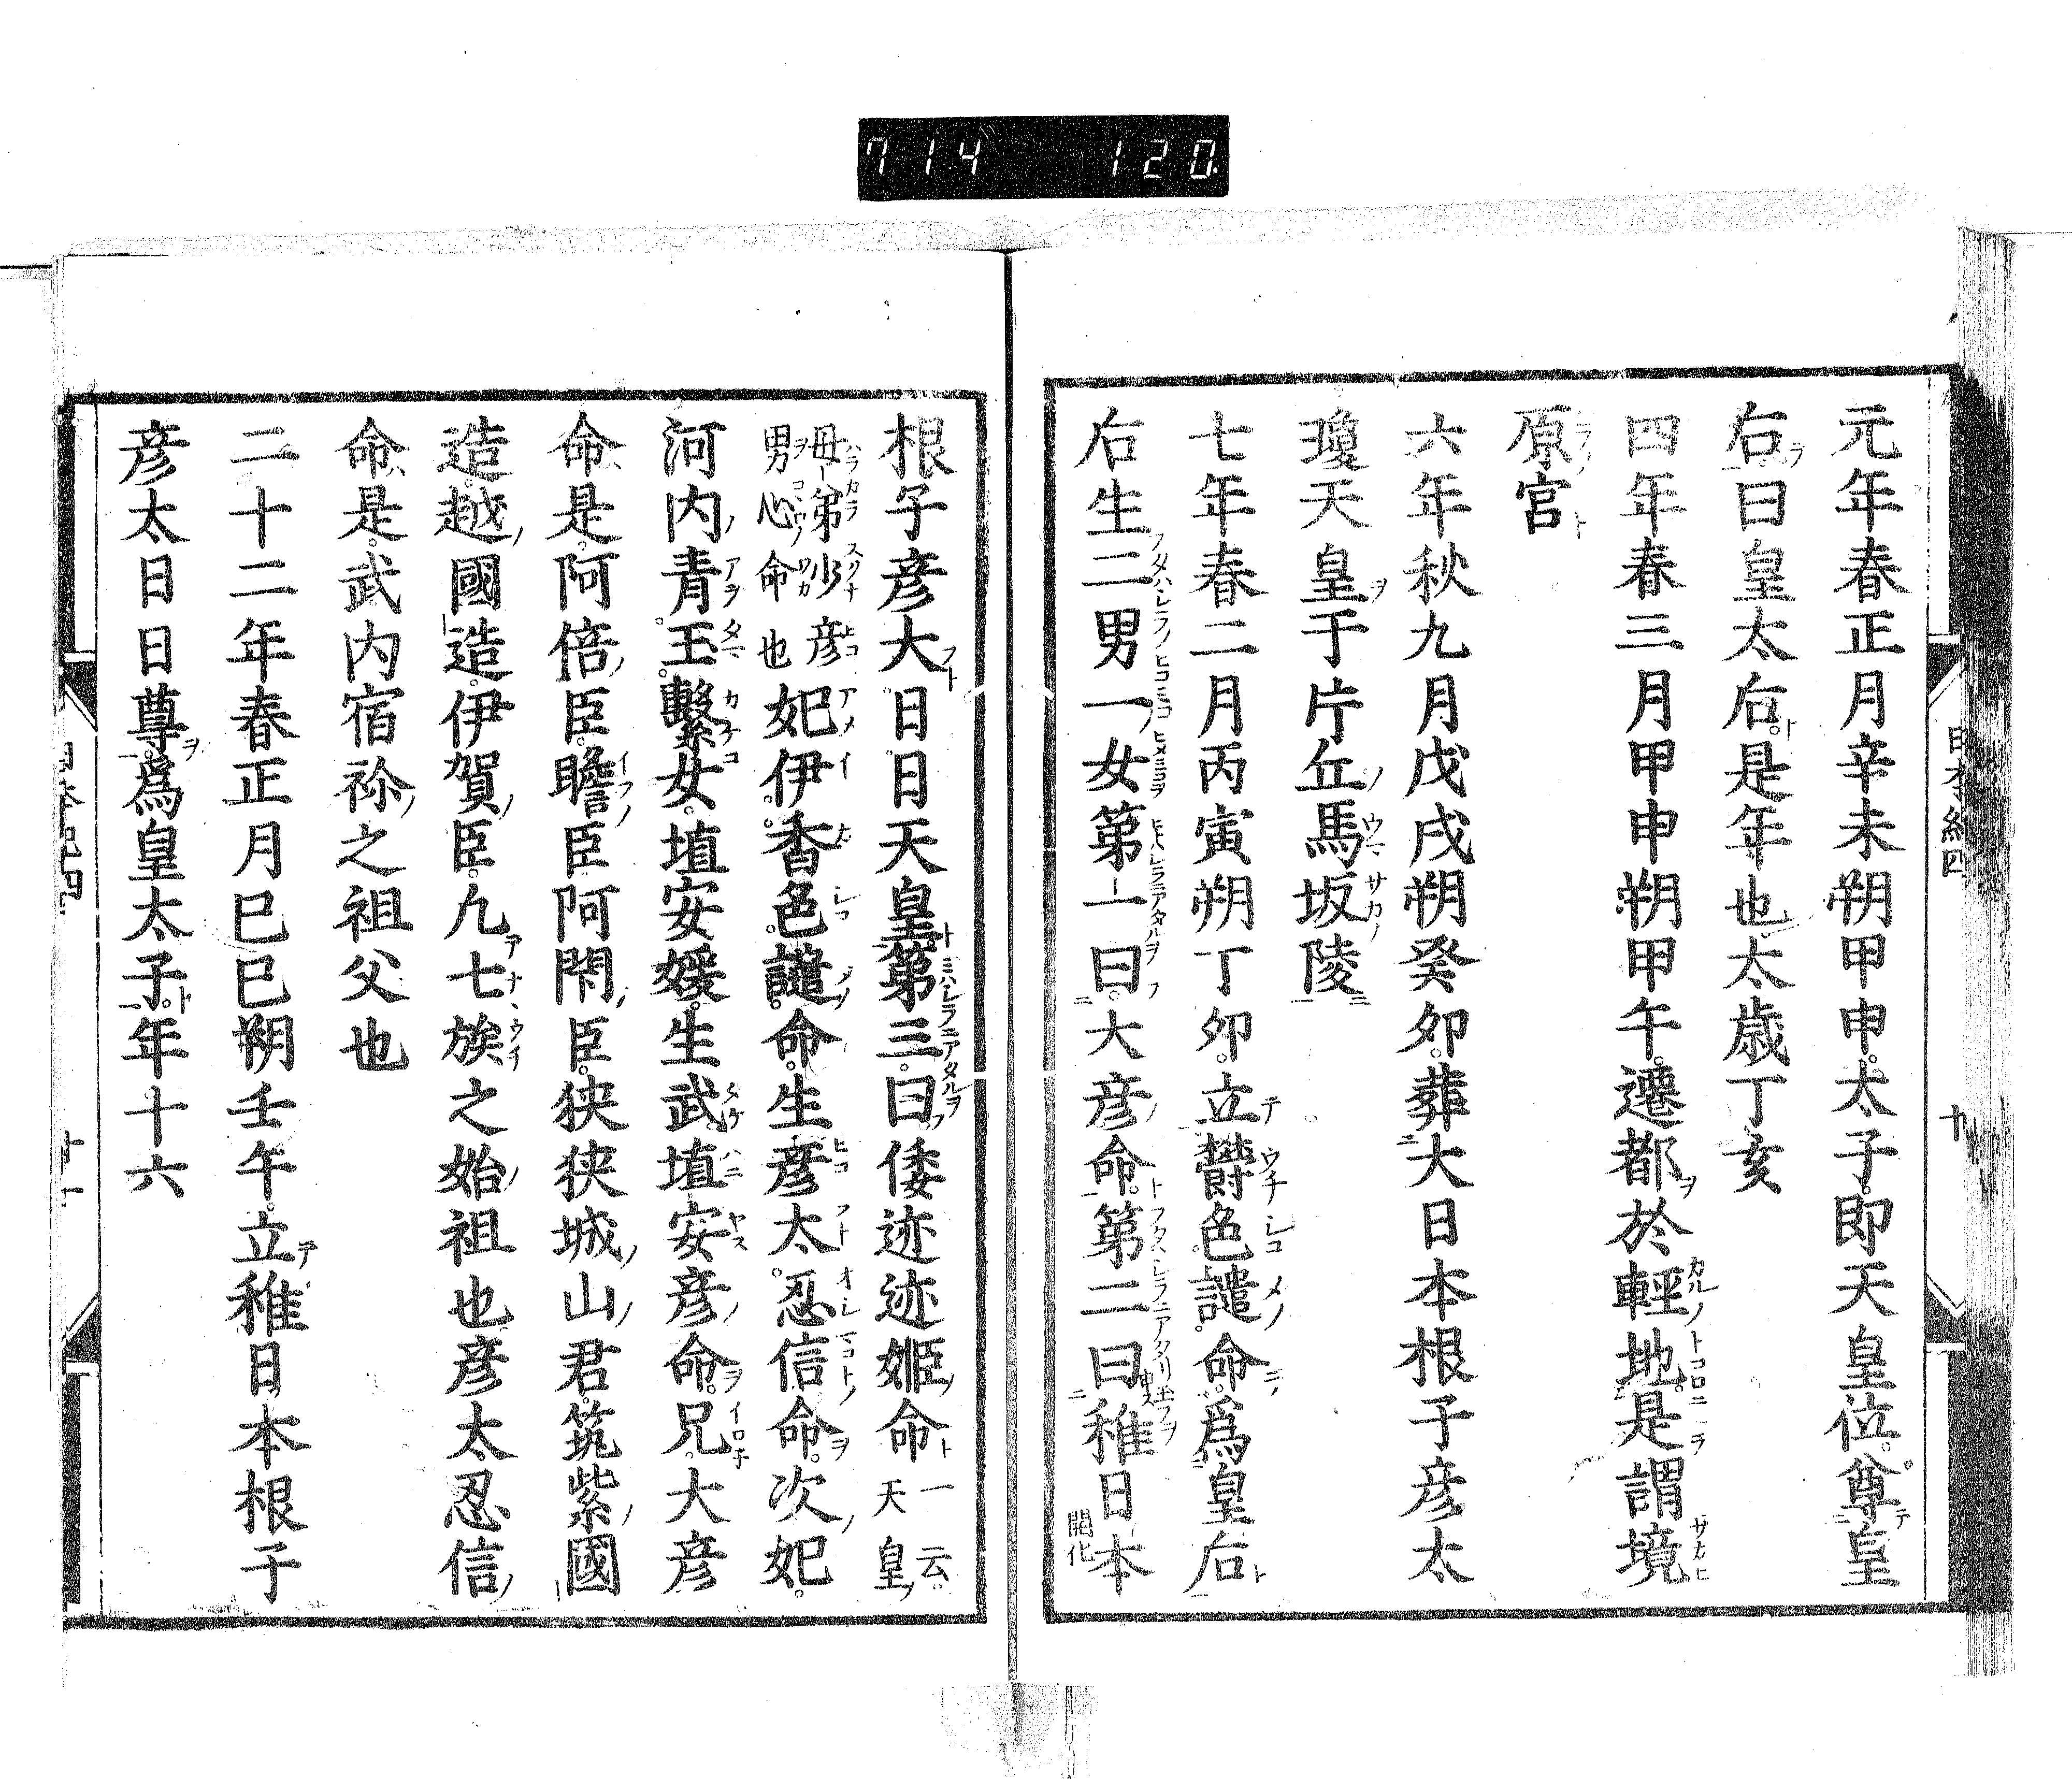 714 120
日本紀四 十
元年春正月辛未朔甲申太子即天皇位尊皇
后曰皇太后是年也太歳丁亥
四年春三月甲申朔甲午遷都於輕地是謂境
原宮
六年秋九月戊戌朔癸卯葬大日本根子彦太
瓊天皇于片丘馬坂陵
七年春二月丙寅朔丁卯立欝色謎命爲皇后
后生二男一女第一曰大彦命第二曰稚日本
開化
根子彦大日日天皇第三曰倭迹迹姫命一云天皇
母弟少彦男心命也妃伊香色謎命生彦太忍信命次妃
河内青玉繫女埴安媛生武埴安彦命兄大彦
命是阿倍臣膽臣阿閇臣狭狭城山君筑紫國
造越國造伊賀臣九七族之始祖也彦太忍信
命是武内宿祢之祖父也
二十二年春正月巳巳朔壬午立稚日本根子
彦太日日尊爲皇太子年十六
十一